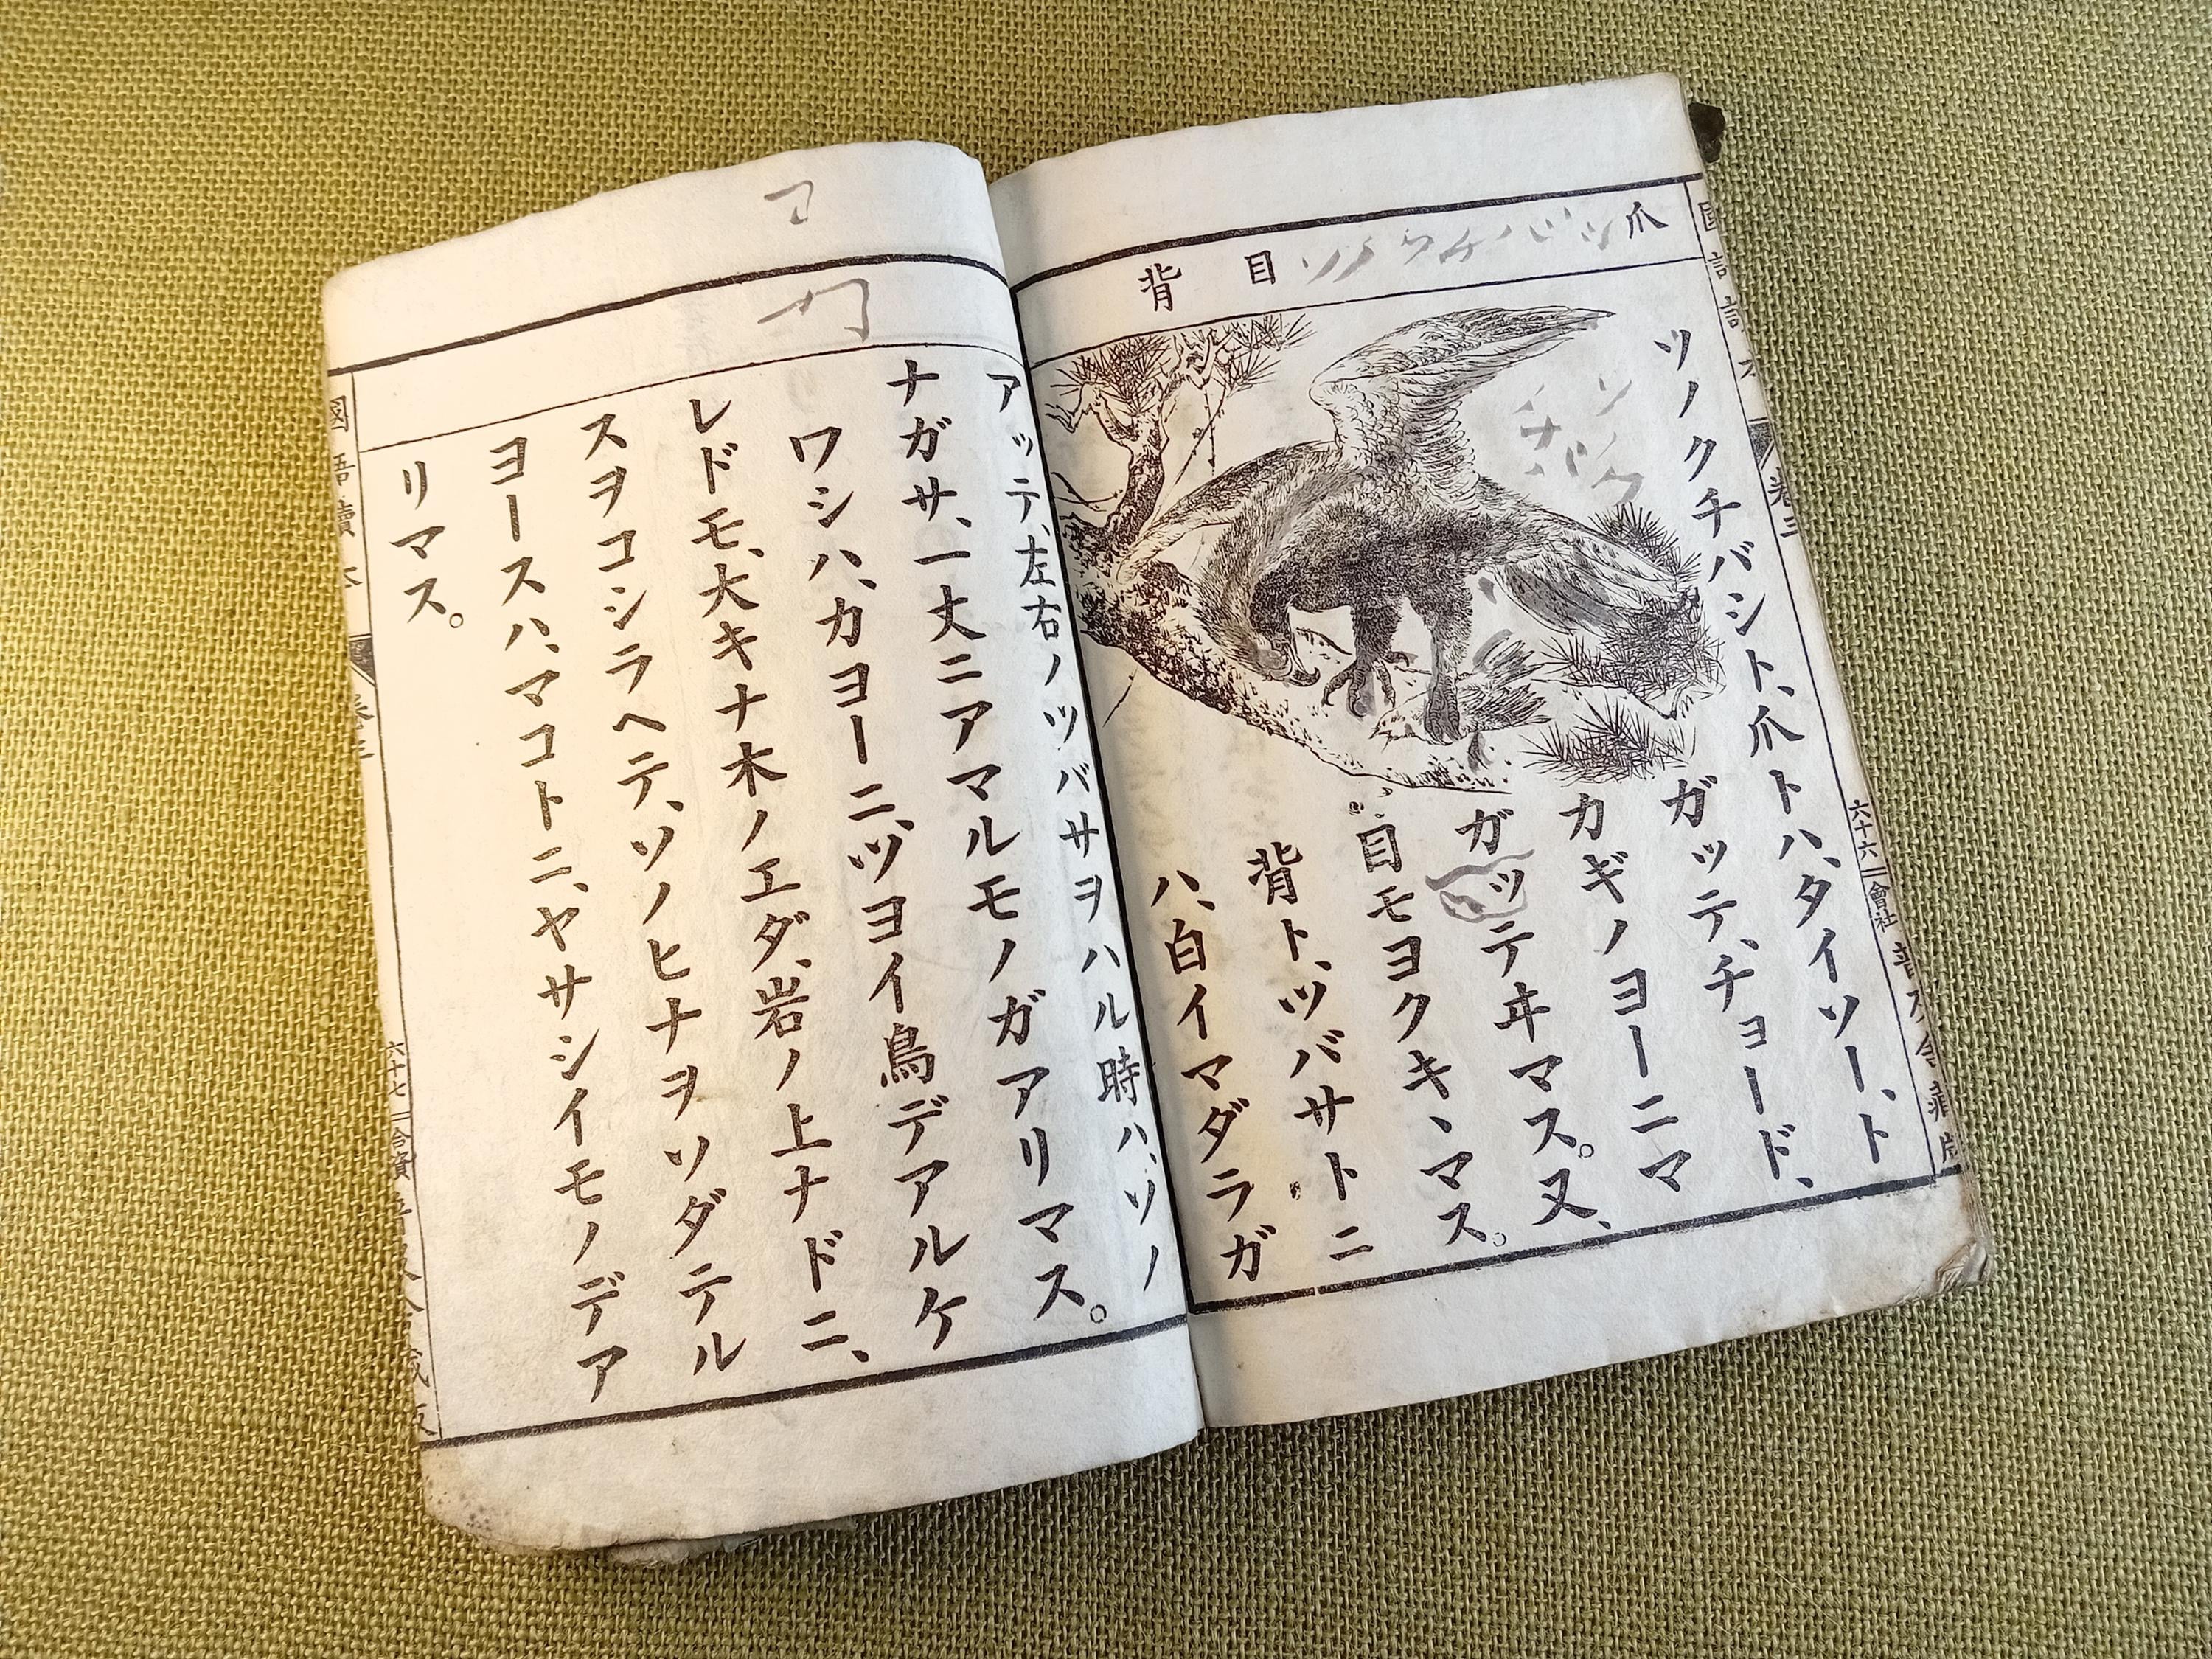 爪
目
背
ソノクチバシト、爪トハ、タイソー、ト
ガッテ、チョード、
カギノヨーニマ
ガッテヰマス。又、
目モヨクキヽマス。
背ト、ツバサトニ
ハ、白イマダラガ
アッテ、左右ノツバサヲハル時ハ、ソノ
ナガサ、一丈ニアマルモノガアリマス。
ワシハ、カヨーニ、ツヨイ鳥デアルケ
レドモ、大キナ木ノエダ、岩ノ上ナドニ、
スヲコシラヘテ、ソノヒナヲソダテル
ヨースハ、マコトニ、ヤサシイモノデア
リマス。
卷三
六十六
會社
國語讀本
六十七